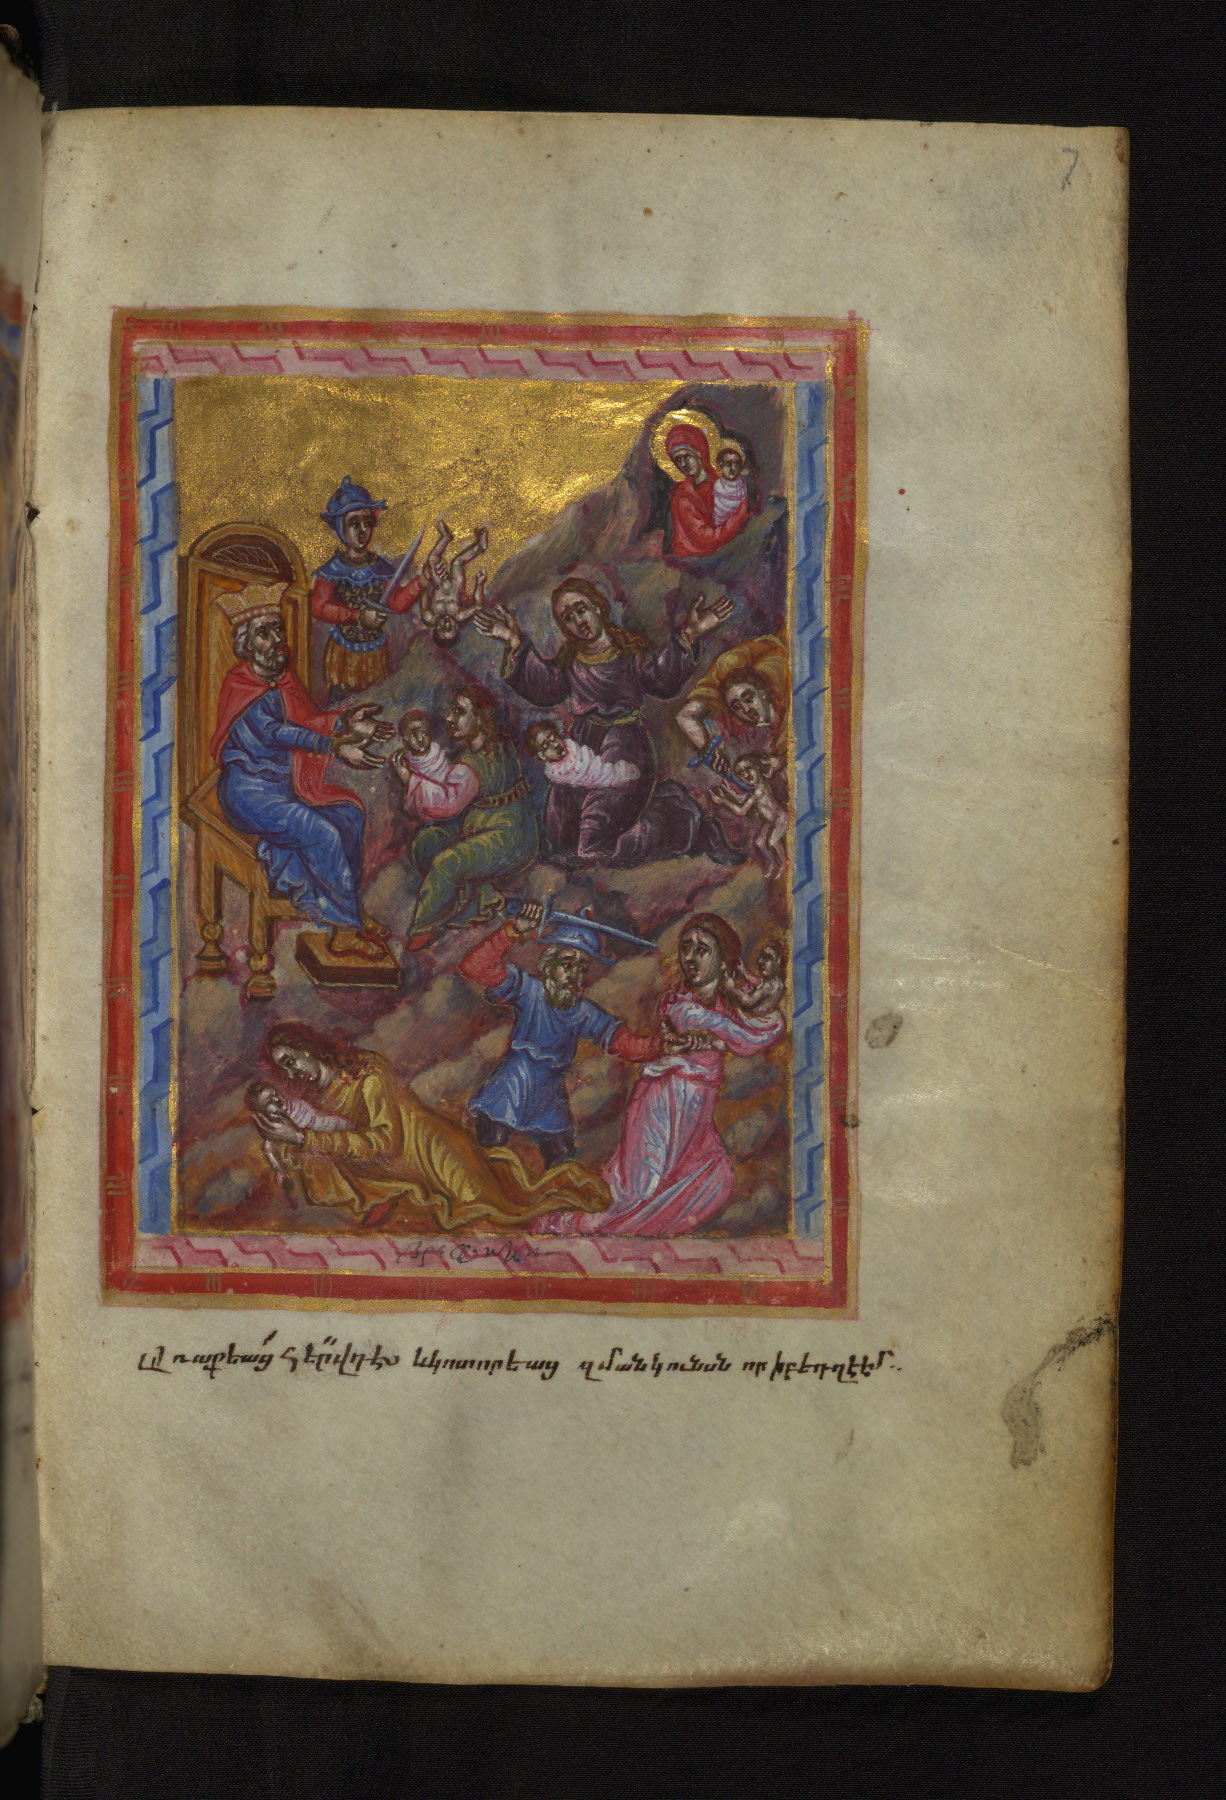 7
առաքեաց հերովդէս և կոտորեաց զմանկունսն որ ի բեթղէէմ..